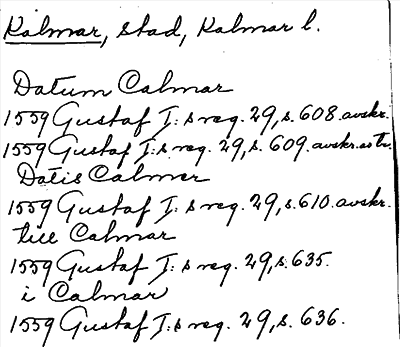 Kalmar, stad, Kalmar l.
Datum Calmar
1559 Gustaf I:s reg. 29, s. 608. avskr.
1559 Gustaf I:s reg. 29, s. 609. avskr.
Datis Calmer
1559 Gustaf I:s reg. 29, s. 610. avskr.
till Calmar
1559 Gustaf I:s reg. 29, s. 635.
i Calmar
1559 Gustaf I:s reg. 29, s. 636.